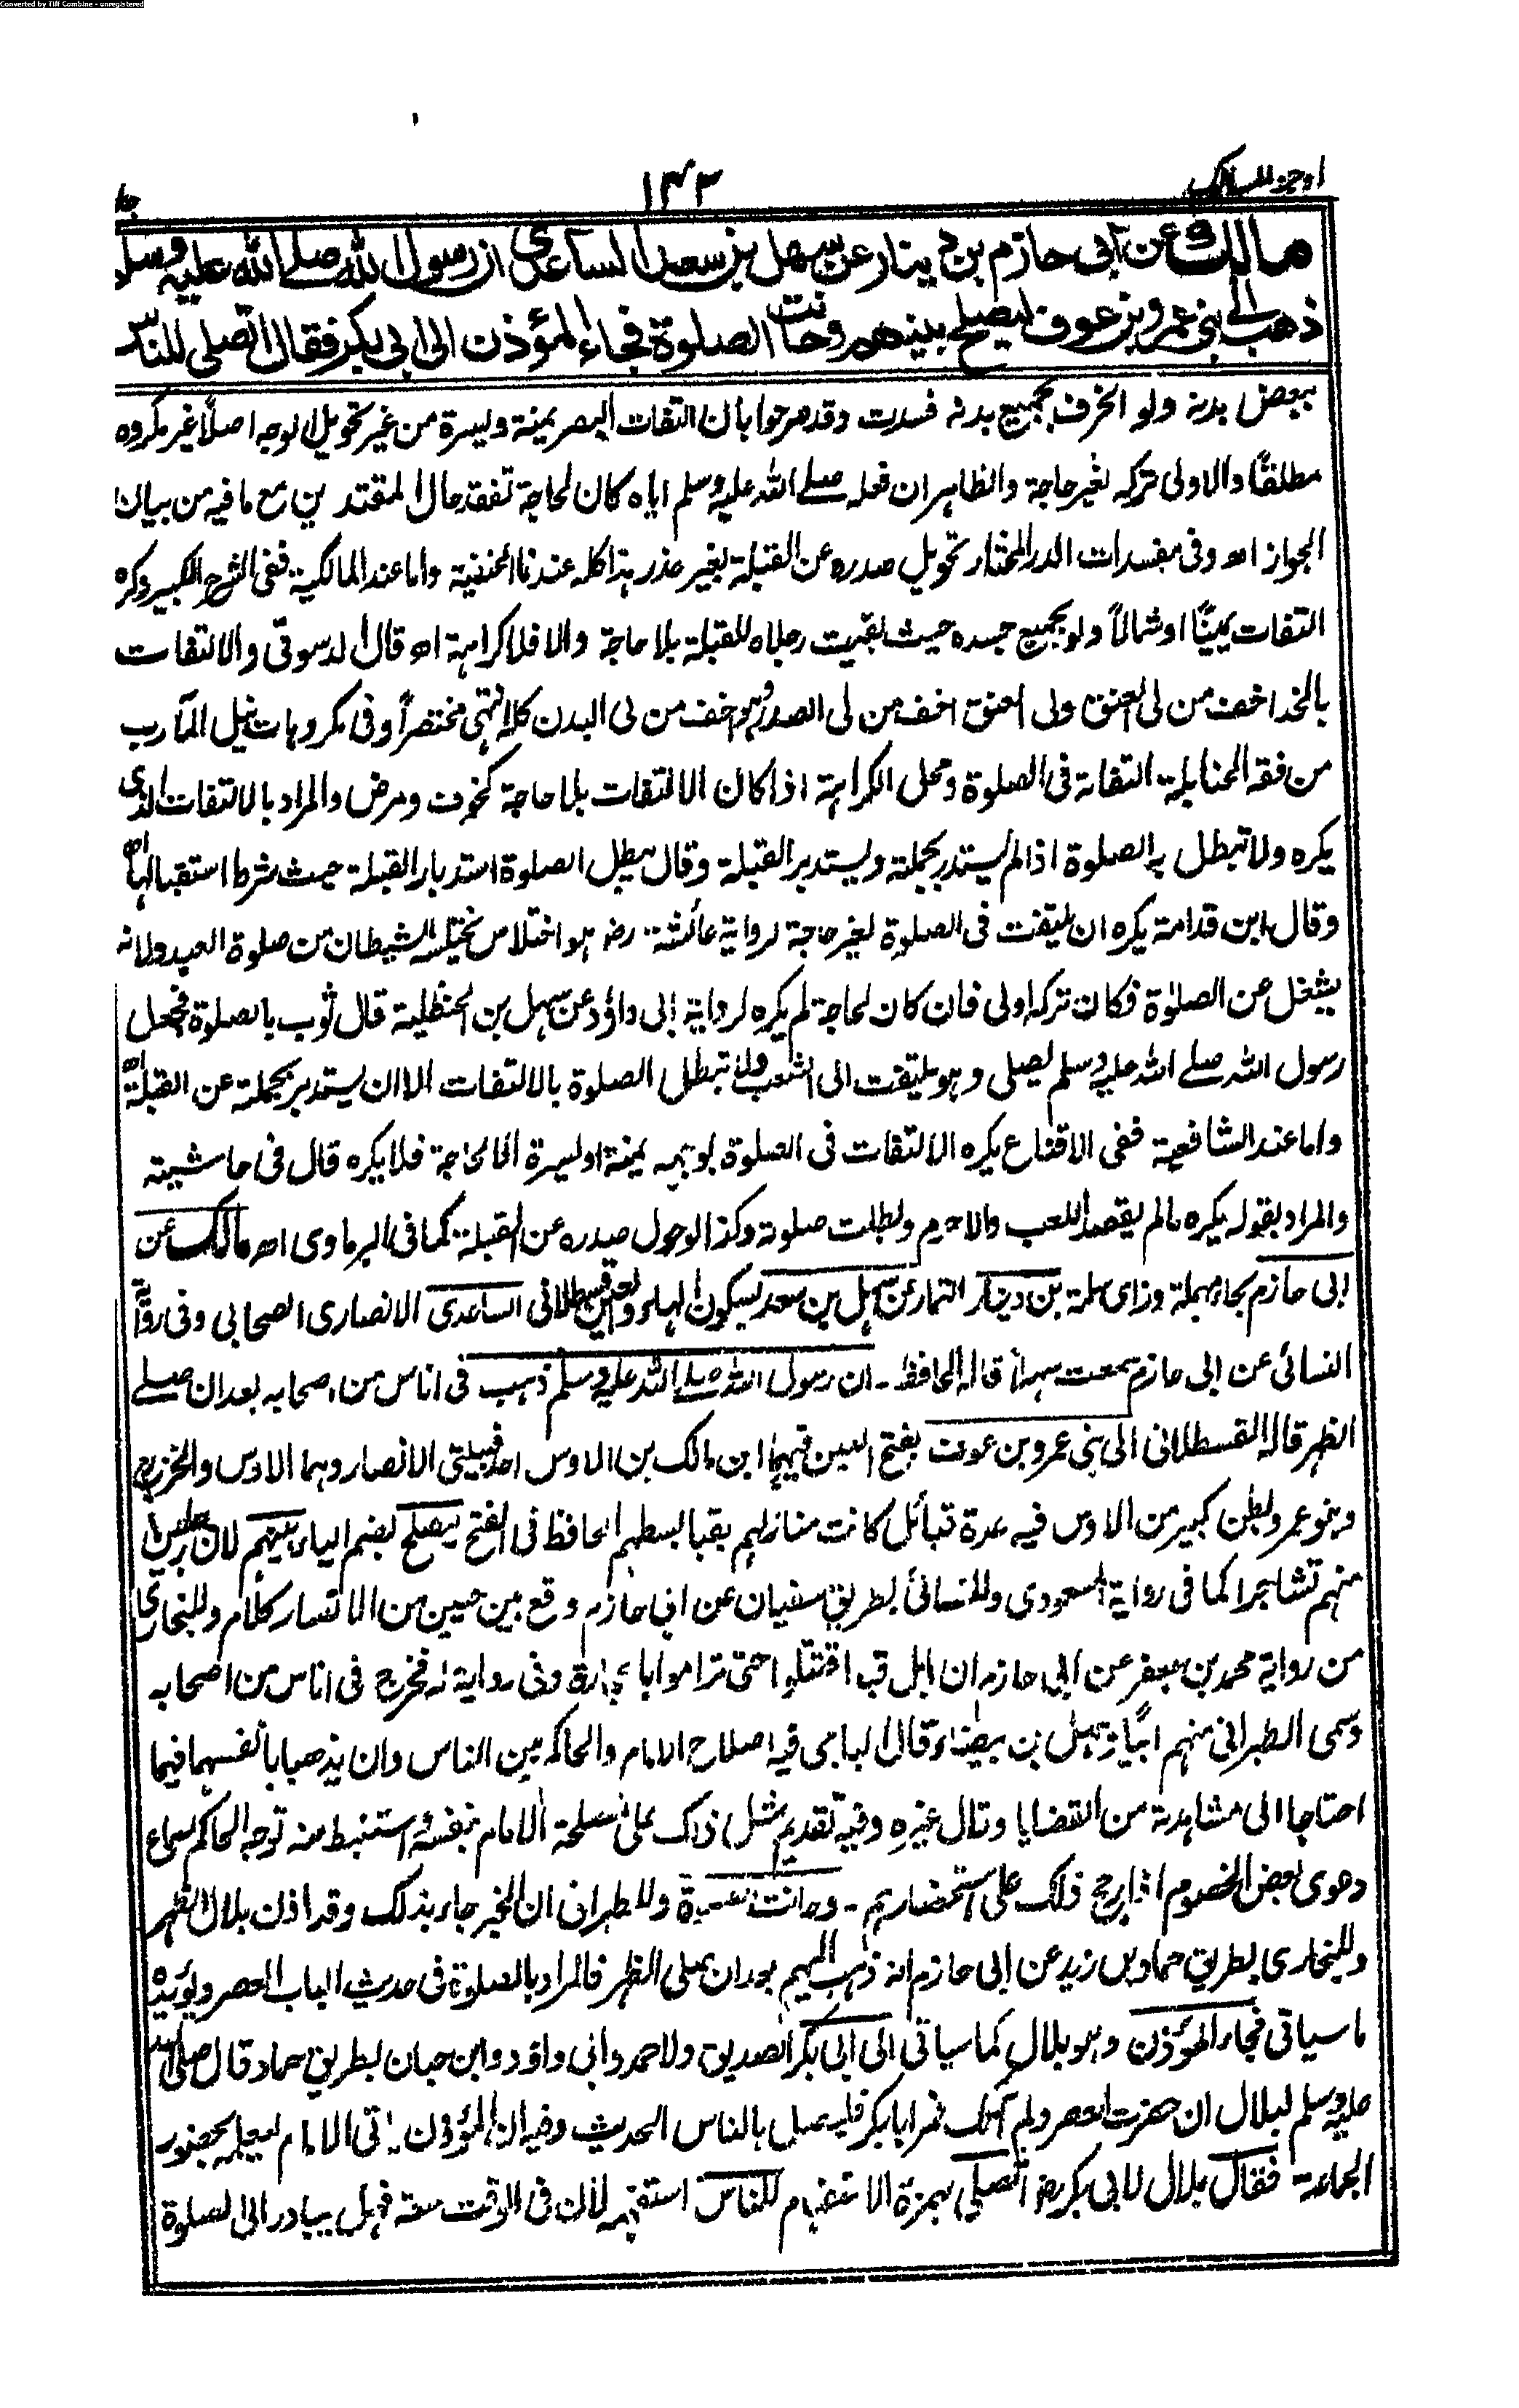 Converted by Tiff Combine - unregistered
اوجز المسالك ١٣٢ جلد
مالك عن ابى حازم بن دينار عن سهل بن سعد الساعدى ان رسول الله صلے الله عليه وسلم
ذهب الى بنى عمرو بن عوف ليصلح بينهم وحانت الصلوة فجاء المؤذن الى ابى بكر فقال اتصلى للناس
ببعض بدنه ولو انحرف بجميع بدنه فسدت وقد صرحوا بأن التفات البصر يمنة ويسرة من غير تحويل الوجه اصلاً غير مكروه
مطلقًا والاولى تركه لغير حاجة والظاهر ان فعله صلے الله عليه وسلم اياه كان لحاجة تفقد حال المقتدين مع ما فيه من بيان
الجواز اه وفى مفسدات الدر المختار تحويل صدره عن القبلة بغير عذر هذا كله عندنا الحنفية واما عند المالكية ففى الشرح الكبير وكره
التفات يمينًا او شمالاً ولو بجميع جسده حيث بقيت رجلاه للقبلة بلا حاجة والا فلا كراهة اه قال الدسوقى والالتفات
بالخد اخف من لى العنق ولى العنق اخف من لى الصدر وهو اخف من لى البدن كله انتهى مختصراً وفى مكروهات نيل المآرب
من فقه الحنابلة التفاته فى الصلوة ومحل الكراهة اذا كان الالتفات بلا حاجة كخوف ومرض والمراد بالالتفات الذى
يكره ولا تبطل به الصلوة اذا لم يستدر بجملته ويستدبر القبلة وقال يبطل الصلوة استدبار القبلة حيث شرط استقبالها اه
وقال ابن قدامة يكره ان يلتفت فى الصلوة لغير حاجة لرواية عائشة رض هو اختلاس يختلسه الشيطان من صلوة العبد ولانه
يشغل عن الصلوٰة فكان تركه اولى فان كان لحاجة لم يكره لرواية ابى داؤد عن سهل بن الحنظلية قال ثوب بالصلوة فجعل
رسول الله صلے الله عليه وسلم يصلى وهو يلتفت الى الشعب ولا تبطل الصلوة بالالتفات الا ان يستدير بجملته عن القبلة اه
واما عند الشافعية ففى الاقناع يكره الالتفات فى الصلوة بوجهه يمنة او يسرة الا لحاجة فلا يكره قال فى حاشيته
والمراد بقوله يكره مالم يقصد اللعب والا حرم وبطلت صلوته وكذا لو حول صدره عن القبلة كما فى البرماوى اه مالك عن
ابى حازم بحاء مهملة وزاى سلمة بن دينار التمار عن سهل بن سعد بسكون الهاء والعين قسطلانى الساعدى الانصارى الصحابى وفى رواية
النسائى عن ابى حازم سمعت سهلاً قاله الحافظ ـ ان رسول الله صلے الله عليه وسلم ذهب فى اناس من اصحابه بعد ان صلے
الظهر قاله القسطلانى الى بنى عمرو بن عوف بفتح العين فيهما ابن مالك بن الاوس احد قبيلتى الانصار وهما الاوس والخزرج
وبنو عمرو بطن كبير من الاوس فيه عدة قبائل كانت منازلهم بقبا بسطهم الحافظ فى الفتح ليصلح بضم الياء بينهم لان رجلين
منهم تشاجرا كما فى رواية المسعودى وللنسائى بطريق سفيان عن ابى حازم وقع بين حيين من الانصار كلام وللبخارى
من رواية محمد بن جعفر عن ابى حازم ان اهل قبا اقتتلوا حتى تراموا بالحجارة وفى رواية له فخرج فى اناس من اصحابه
وسمى الطبرانى منهم ابيًا وسهل بن بيضاء وقال الباجى فيه اصلاح الامام والحاكم بين الناس وان يذهبا بأنفسهما فيما
احتاجا الى مشاهدته من القضايا وقال غيره وفيه تقديم مثل ذلك على مصلحة الامام بنفسه واستنبط منه توجه الحاكم لسماع
دعوى بعض الخصوم اذا رجح ذلك على استحضارهم ـ وحانت الصلوة وللطبرانى ان الخبر جاء بذلك وقد اذن بلال الظهر
وللبخارى بطريق حماد بن زيد عن ابى حازم انه ذهب اليهم بعد ان صلى الظهر فالمراد بالصلوة فى حديث الباب العصر ويؤيده
ما سياتى فجاء المؤذن وهو بلال كما سياتى الى ابى بكر الصديق ولاحمد وابى داؤد وابن حبان بطريق حماد قال صلى الله
عليه وسلم لبلال ان حضرت العصر ولم آتك فمر ابا بكر فليصل بالناس الحديث وفيه ان المؤذن ياتى الامام ليعلمه بحضور
الجماعة فقال بلال لابى بكر رض اتصلى بهمزة الاستفهام للناس استفهمه لان فى الوقت سعة فهل يبادر الى الصلوة